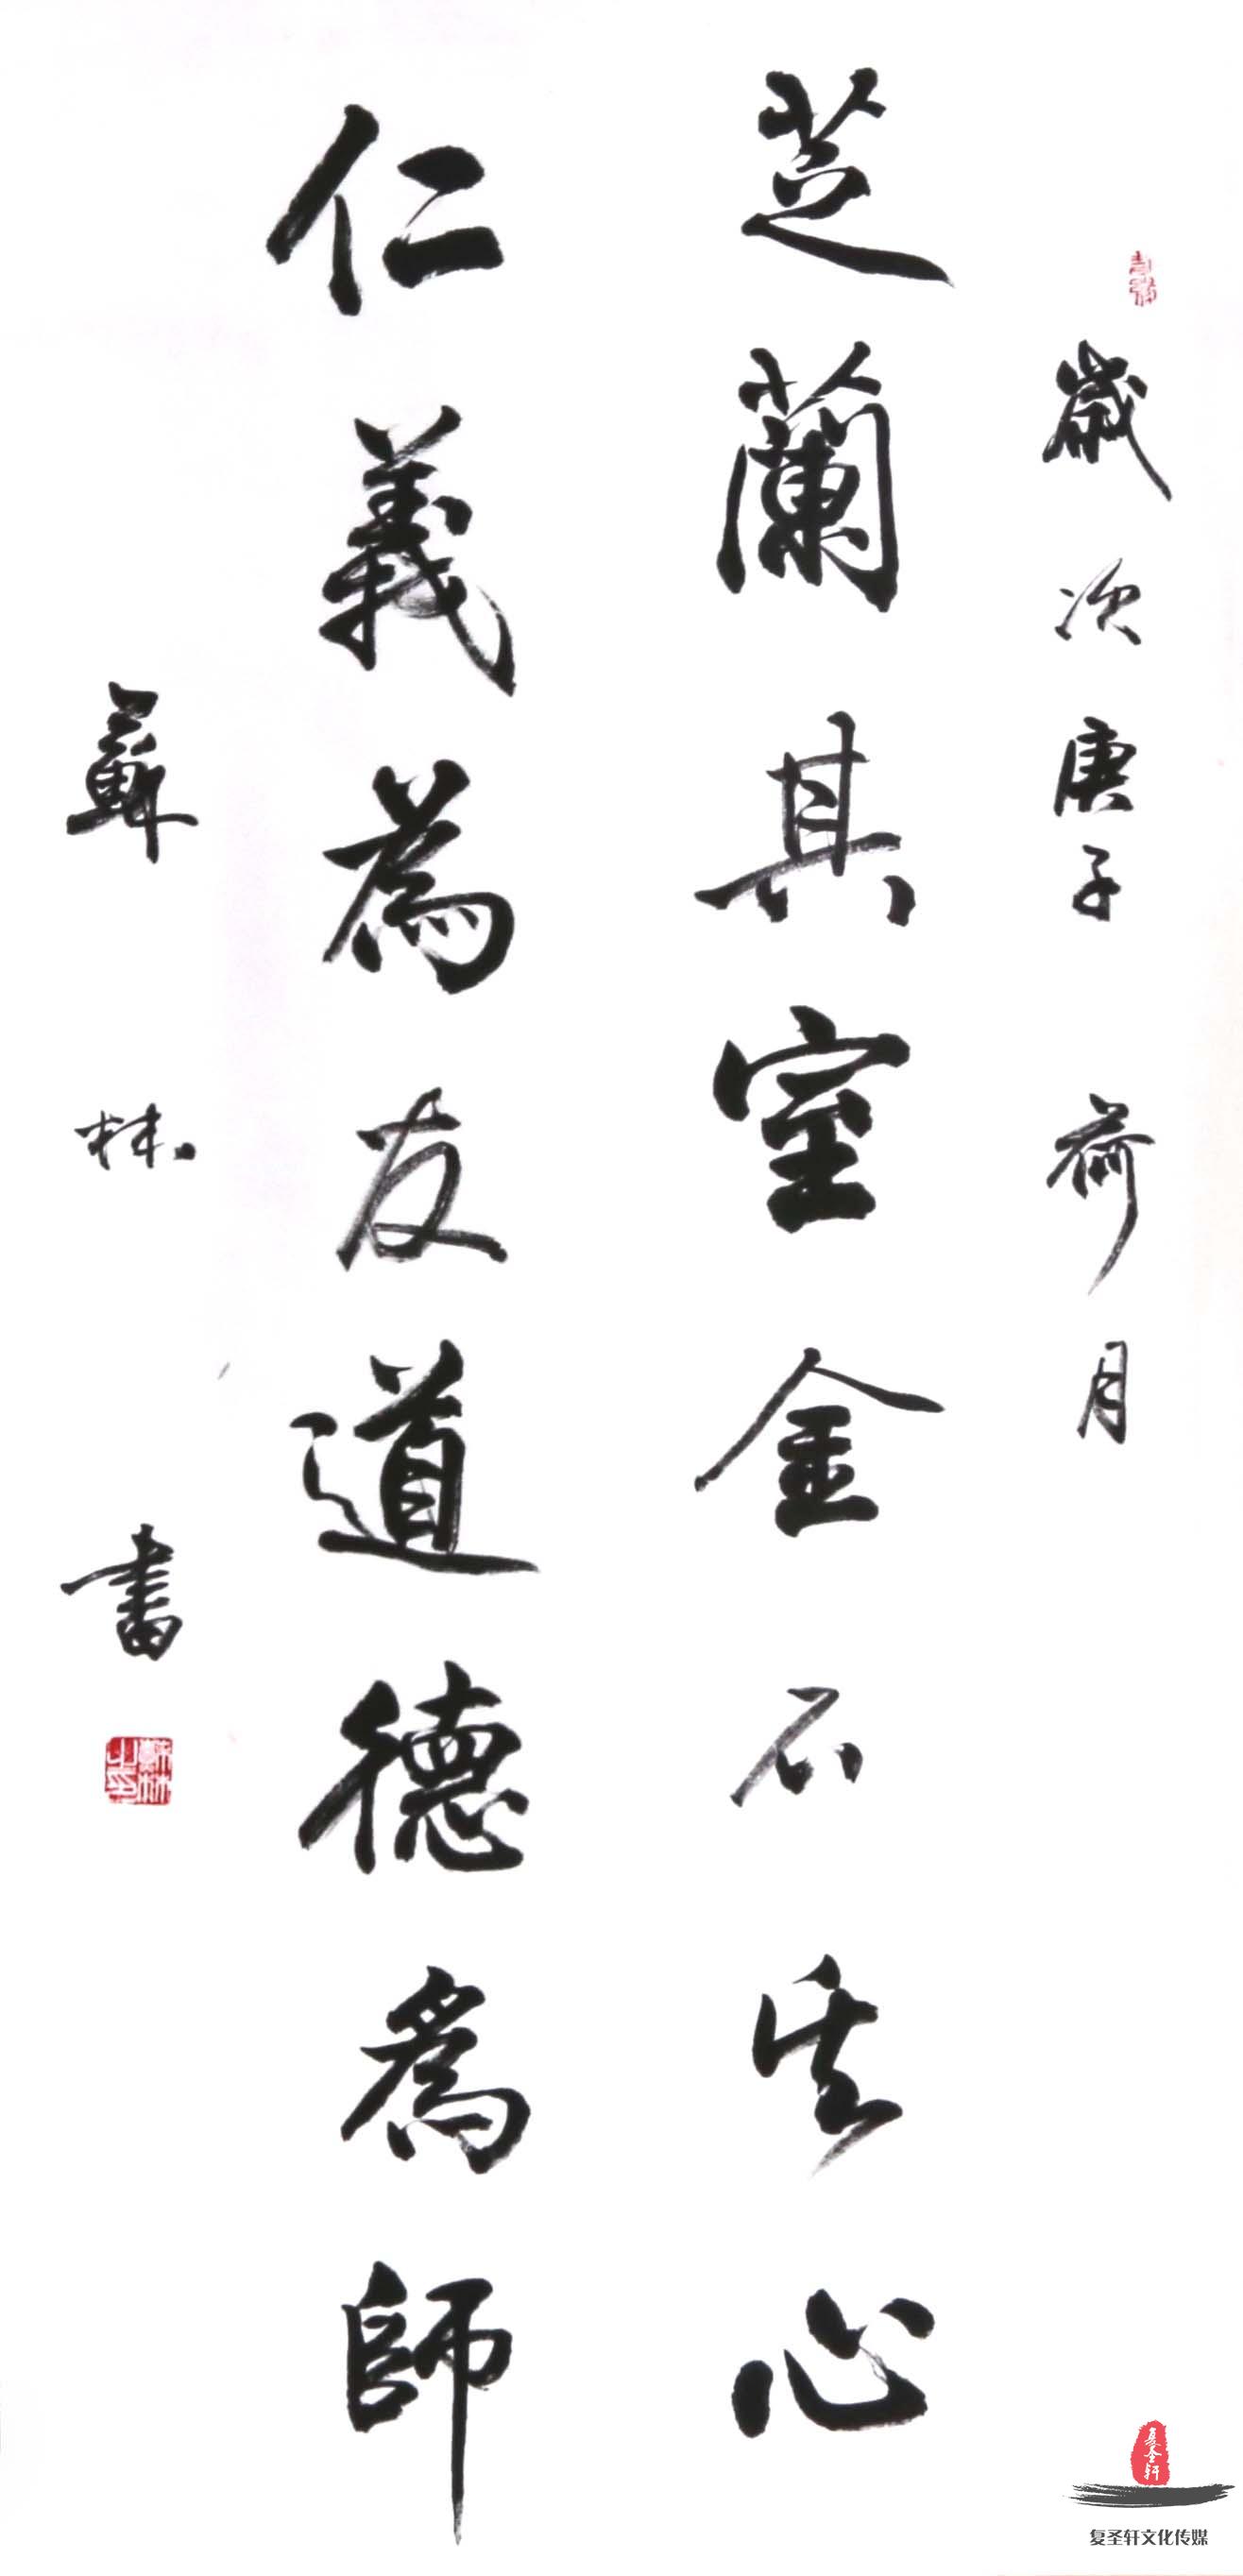 歲次庚子 荷月
芝蘭其室金石其心
仁義為友道德為師
蘇林書
蘇林之印
复圣轩
复圣轩文化传媒